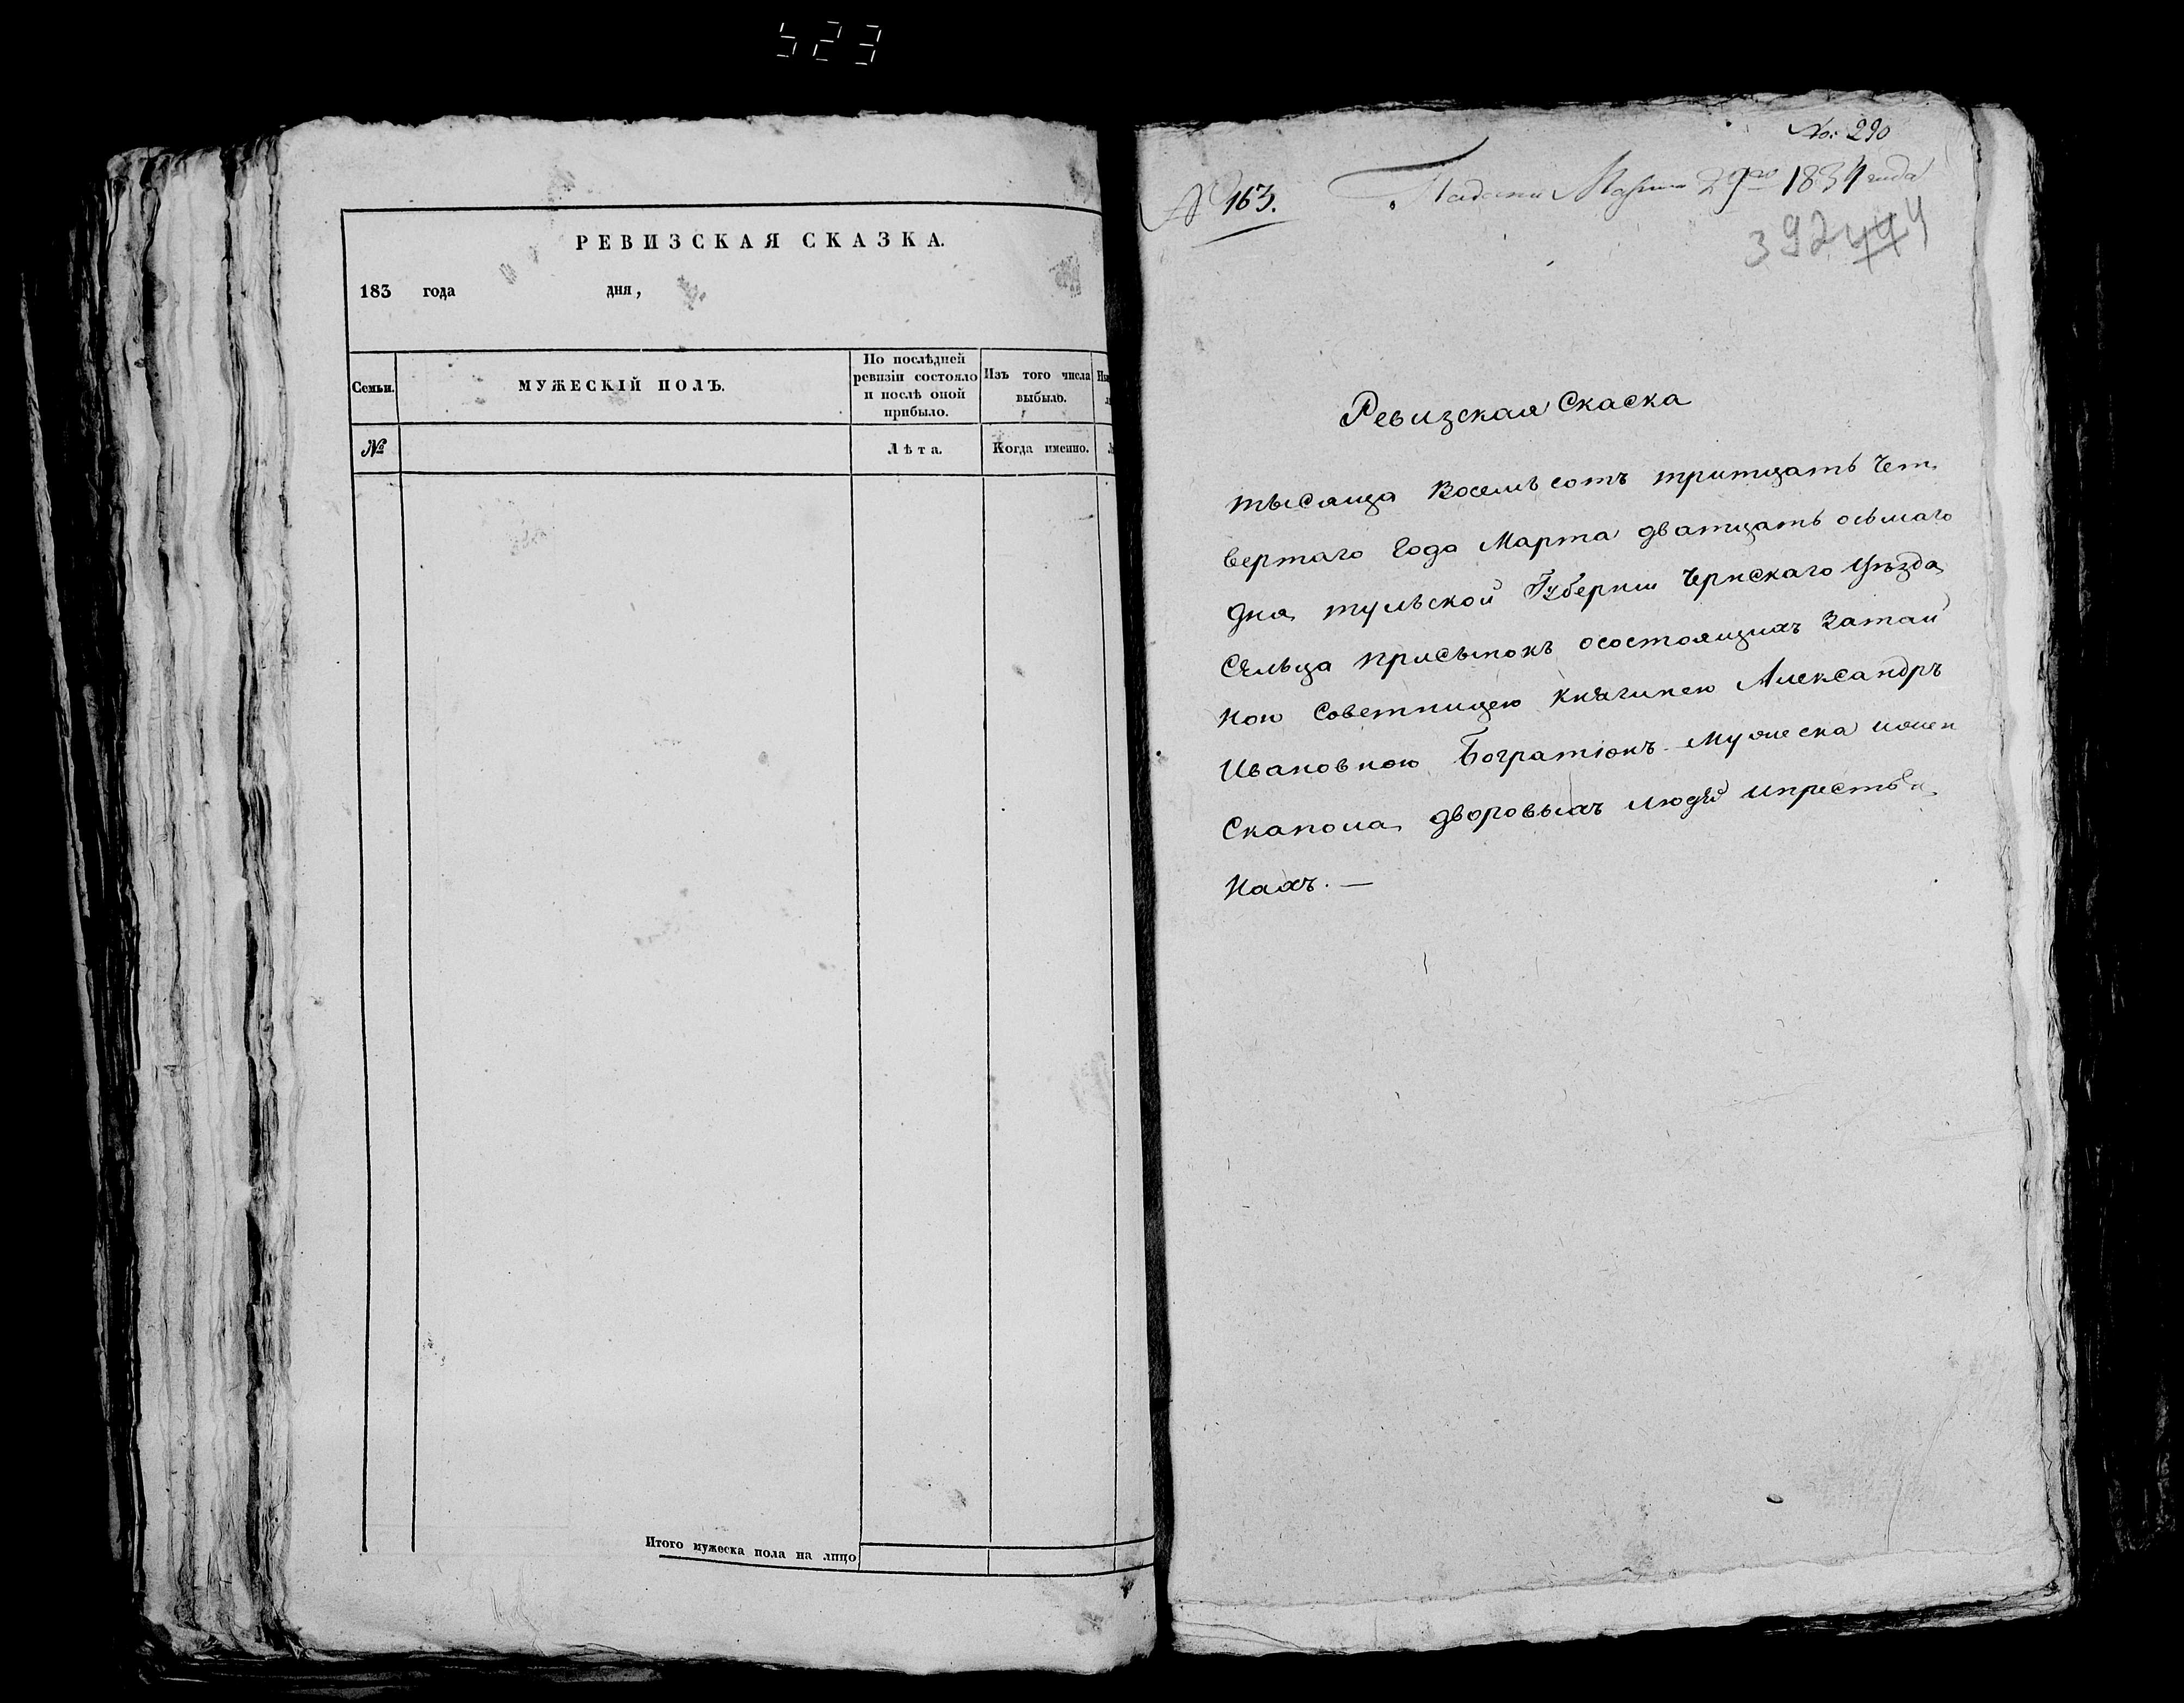 523
РЕВИЗСКАЯ СКАЗКА.
183 года дня,
Семьи.
МУЖЕСКІЙ ПОЛЪ.
По послѣдней
ревизіи состояло
и послѣ оной
прибыло.
Изъ того числа
выбыло.
№
Лѣта.
Когда именно.
Итого мужеска пола на лицо
No: 290
№ 163.
Подана Марта 29го 1834 года
392
Ревизская Скаска
тысяща восемьсотъ тритцать чет
вертаго Года Марта дватцать осьмаго
дня тульской Губернии Чернскаго Уѣзда
Сѣльца присыпокъ осостоящихъ Затай
ною Советницею Княгинею Александръ
Ивановною Богратіонъ Мужеска ижен
Скапола дворовыхъ людѣй икрестья
нахъ. —